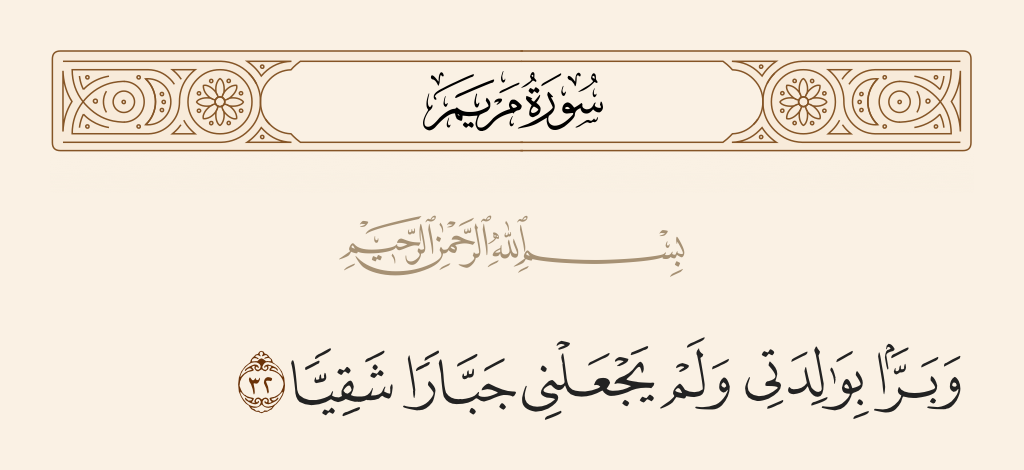 سُورَةُ مَرْيَمَ
بِسْمِ ٱللَّهِ ٱلرَّحْمَٰنِ ٱلرَّحِيمِ
وَبَرَّۢا بِوَٰلِدَتِى وَلَمْ يَجْعَلْنِى جَبَّارًا شَقِيًّا ٣٢